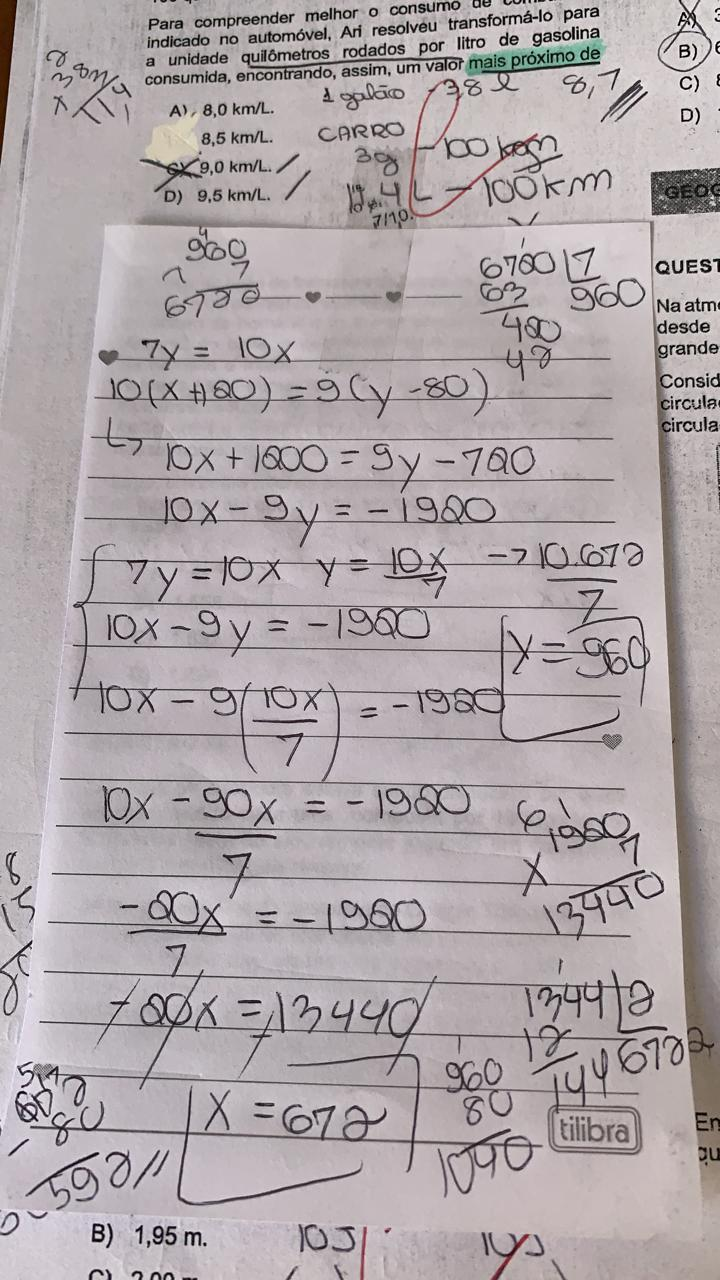 Para compreender melhor o consumo de
indicado no automóvel, Ari resolveu transformá-lo para
a unidade quilômetros rodados por litro de gasolina
consumida, encontrando, assim, um valor mais próximo de
1 galão - 3,8 l 8,7
A) 8,0 km/L.
8,5 km/L.
CARRO
3g - 100 km
C) 9,0 km/L.
D) 9,5 km/L.
11,4 L - 100 km
A)
B)
C)
D)
GEOG
QUEST
Na atm
desde
grande
Consid
circula
circula
960
7
6720
6720 7
63 960
420
42
7y = 10x
10(x+120) = 9(y-80)
10x+1200 = 9y-720
10x-9y = -1920
7y = 10x y = 10x/7 → 10.672/7
10x-9y = -1920
y = 960
10x - 9(10x/7) = -1920
10x - 90x/7 = -1920
1920
x 7
13440
-20x/7 = -1920
-20x = -13440
1344 2
12 672
144
x = 672
672
- 80
592
960
80
1040
tilibra
B) 1,95 m.